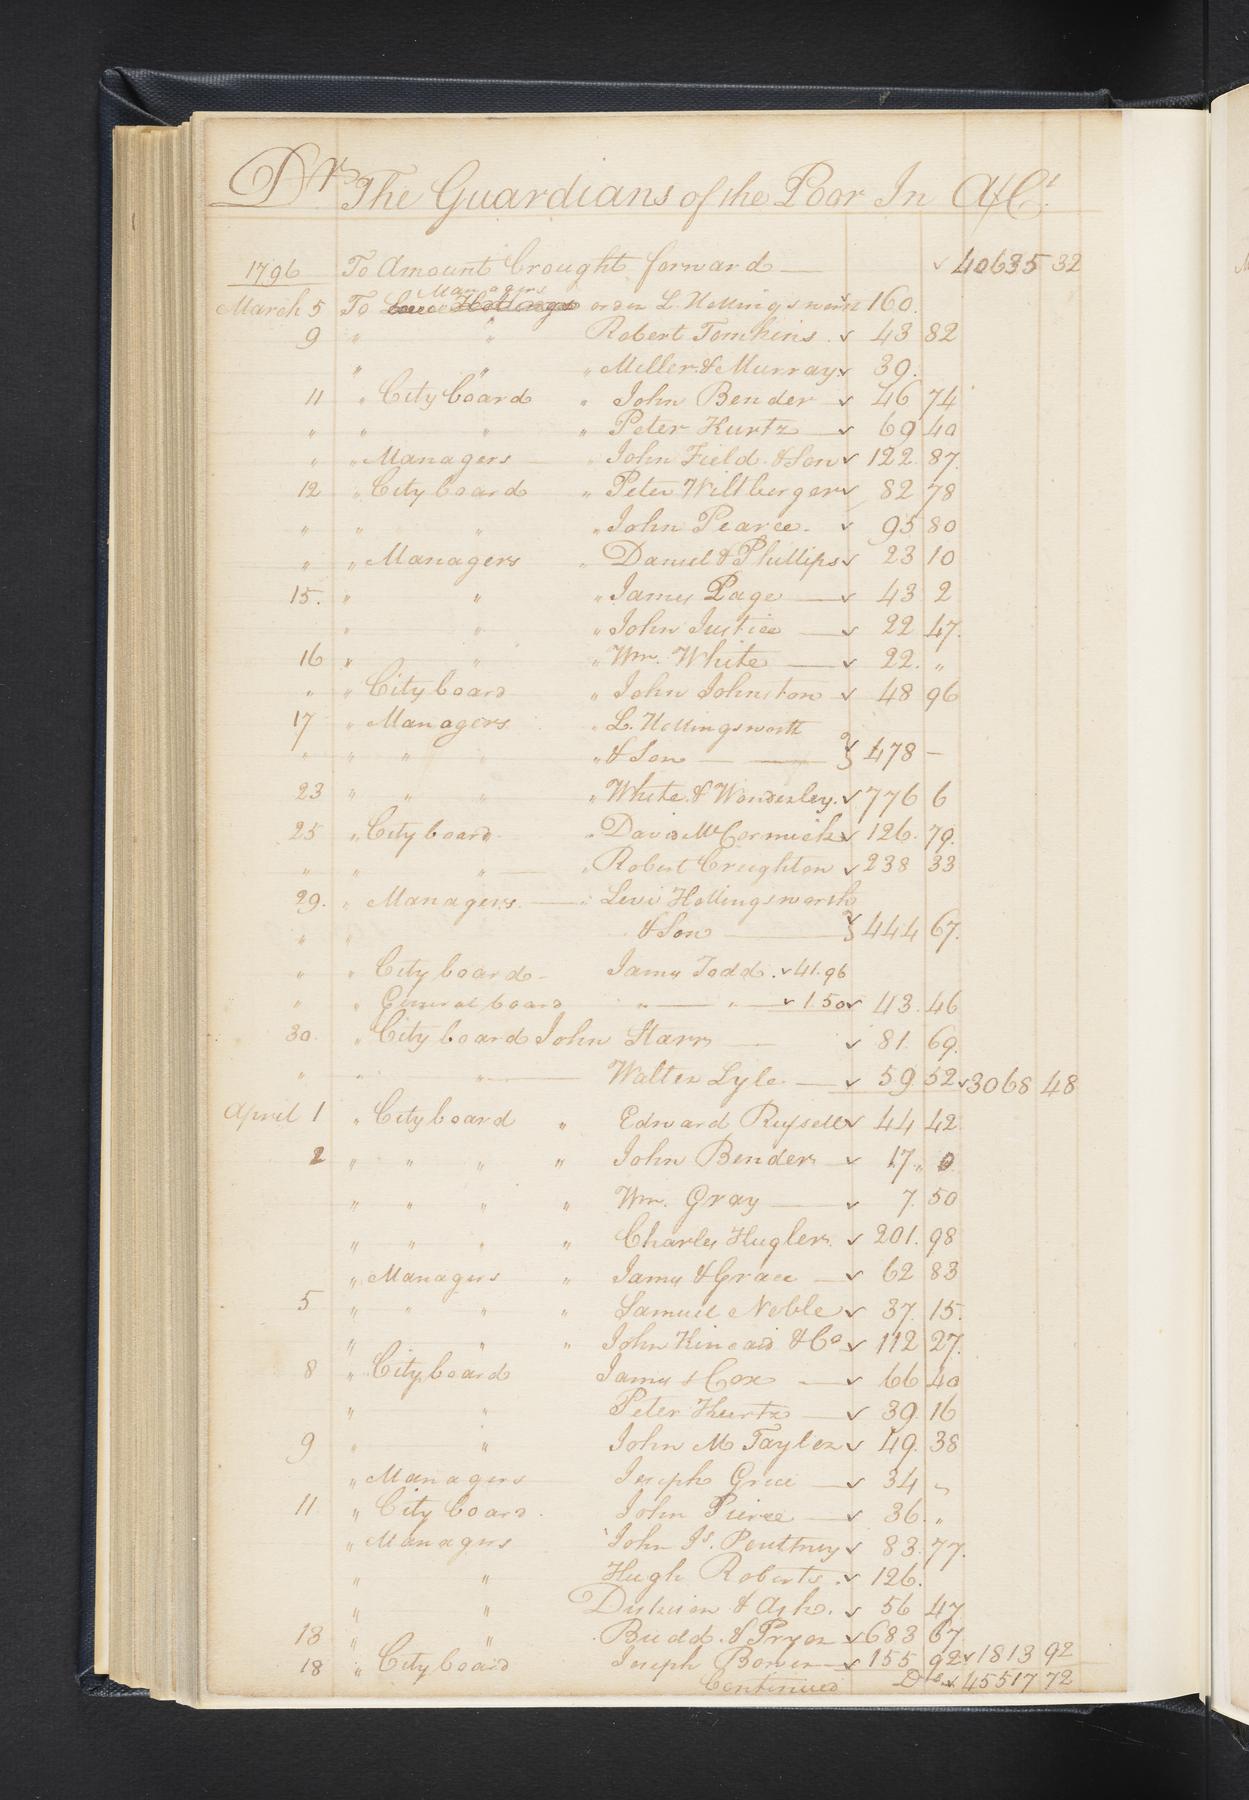 Dr The Guardians of the Poor In A/Ct
1796 To Amount brought forward ✓ 40635 32
Managers
March 5 To order L. Hollingsworth 160.
9 " " Robert Tomkins ✓ 43 82
" " " Miller & Murray ✓ 39.
11 " City board " John Bender ✓ 46 74
" " " " Peter Kurtz ✓ 69 40
" " Managers " John Field & Son ✓ 122. 87.
12 " City board " Peter Wiltberger ✓ 82 78
" " " " John Pearce. ✓ 95 80
" " Managers " Daniel & Phillips ✓ 23 10
15. " " " James Page ✓ 43 2
" " " John Justice ✓ 22 47.
16 " " " Wm. White ✓ 22. "
" " City board " John Johnston ✓ 48 96
17 " Managers " L. Hollingsworth
" " " " " & Son } 478 —
23 " " " " White & Wonderley. ✓ 776 6
25 " City board " David McCormick ✓ 126. 79.
" " " " Robert Creighton ✓ 238 33
29. " Managers " Levi Hollingsworth
" " & Son } 444 67.
" " City board James Todd. ✓ 41.96
" " General board " " ✓ 1.50 ✓ 43. 46
30. " City board John Starr ✓ 81. 69.
" " " Walter Lyle ✓ 59 52 ✓ 3068 48
April 1 " City board " Edward Russell ✓ 44 42
2 " " " " John Bender ✓ 17. 0
" " " " Wm. Gray ✓ 7. 50
" " " " Charles Hugler ✓ 201. 98
" Managers " James & Grace ✓ 62 83
5 " " " " Samuel Noble ✓ 37. 15.
" " " John Kincaid & Co ✓ 112 27.
8 " City board James & Cox ✓ 66 40
" " Peter Kurtz ✓ 39. 16
9 " " John M Tayler ✓ 49. 38
" Managers Joseph Grice ✓ 34 "
11 " City board. John Pierce ✓ 36. "
" Managers John Js. Poultney ✓ 83. 77.
" " Hugh Roberts. ✓ 126.
" " & Ash. ✓ 56 47
13 " " Budd & Pryor ✓ 683 67
18 " City board Joseph Bower ✓ 155 92 ✓ 1813 92
Continued Drs ✓ 45517 72